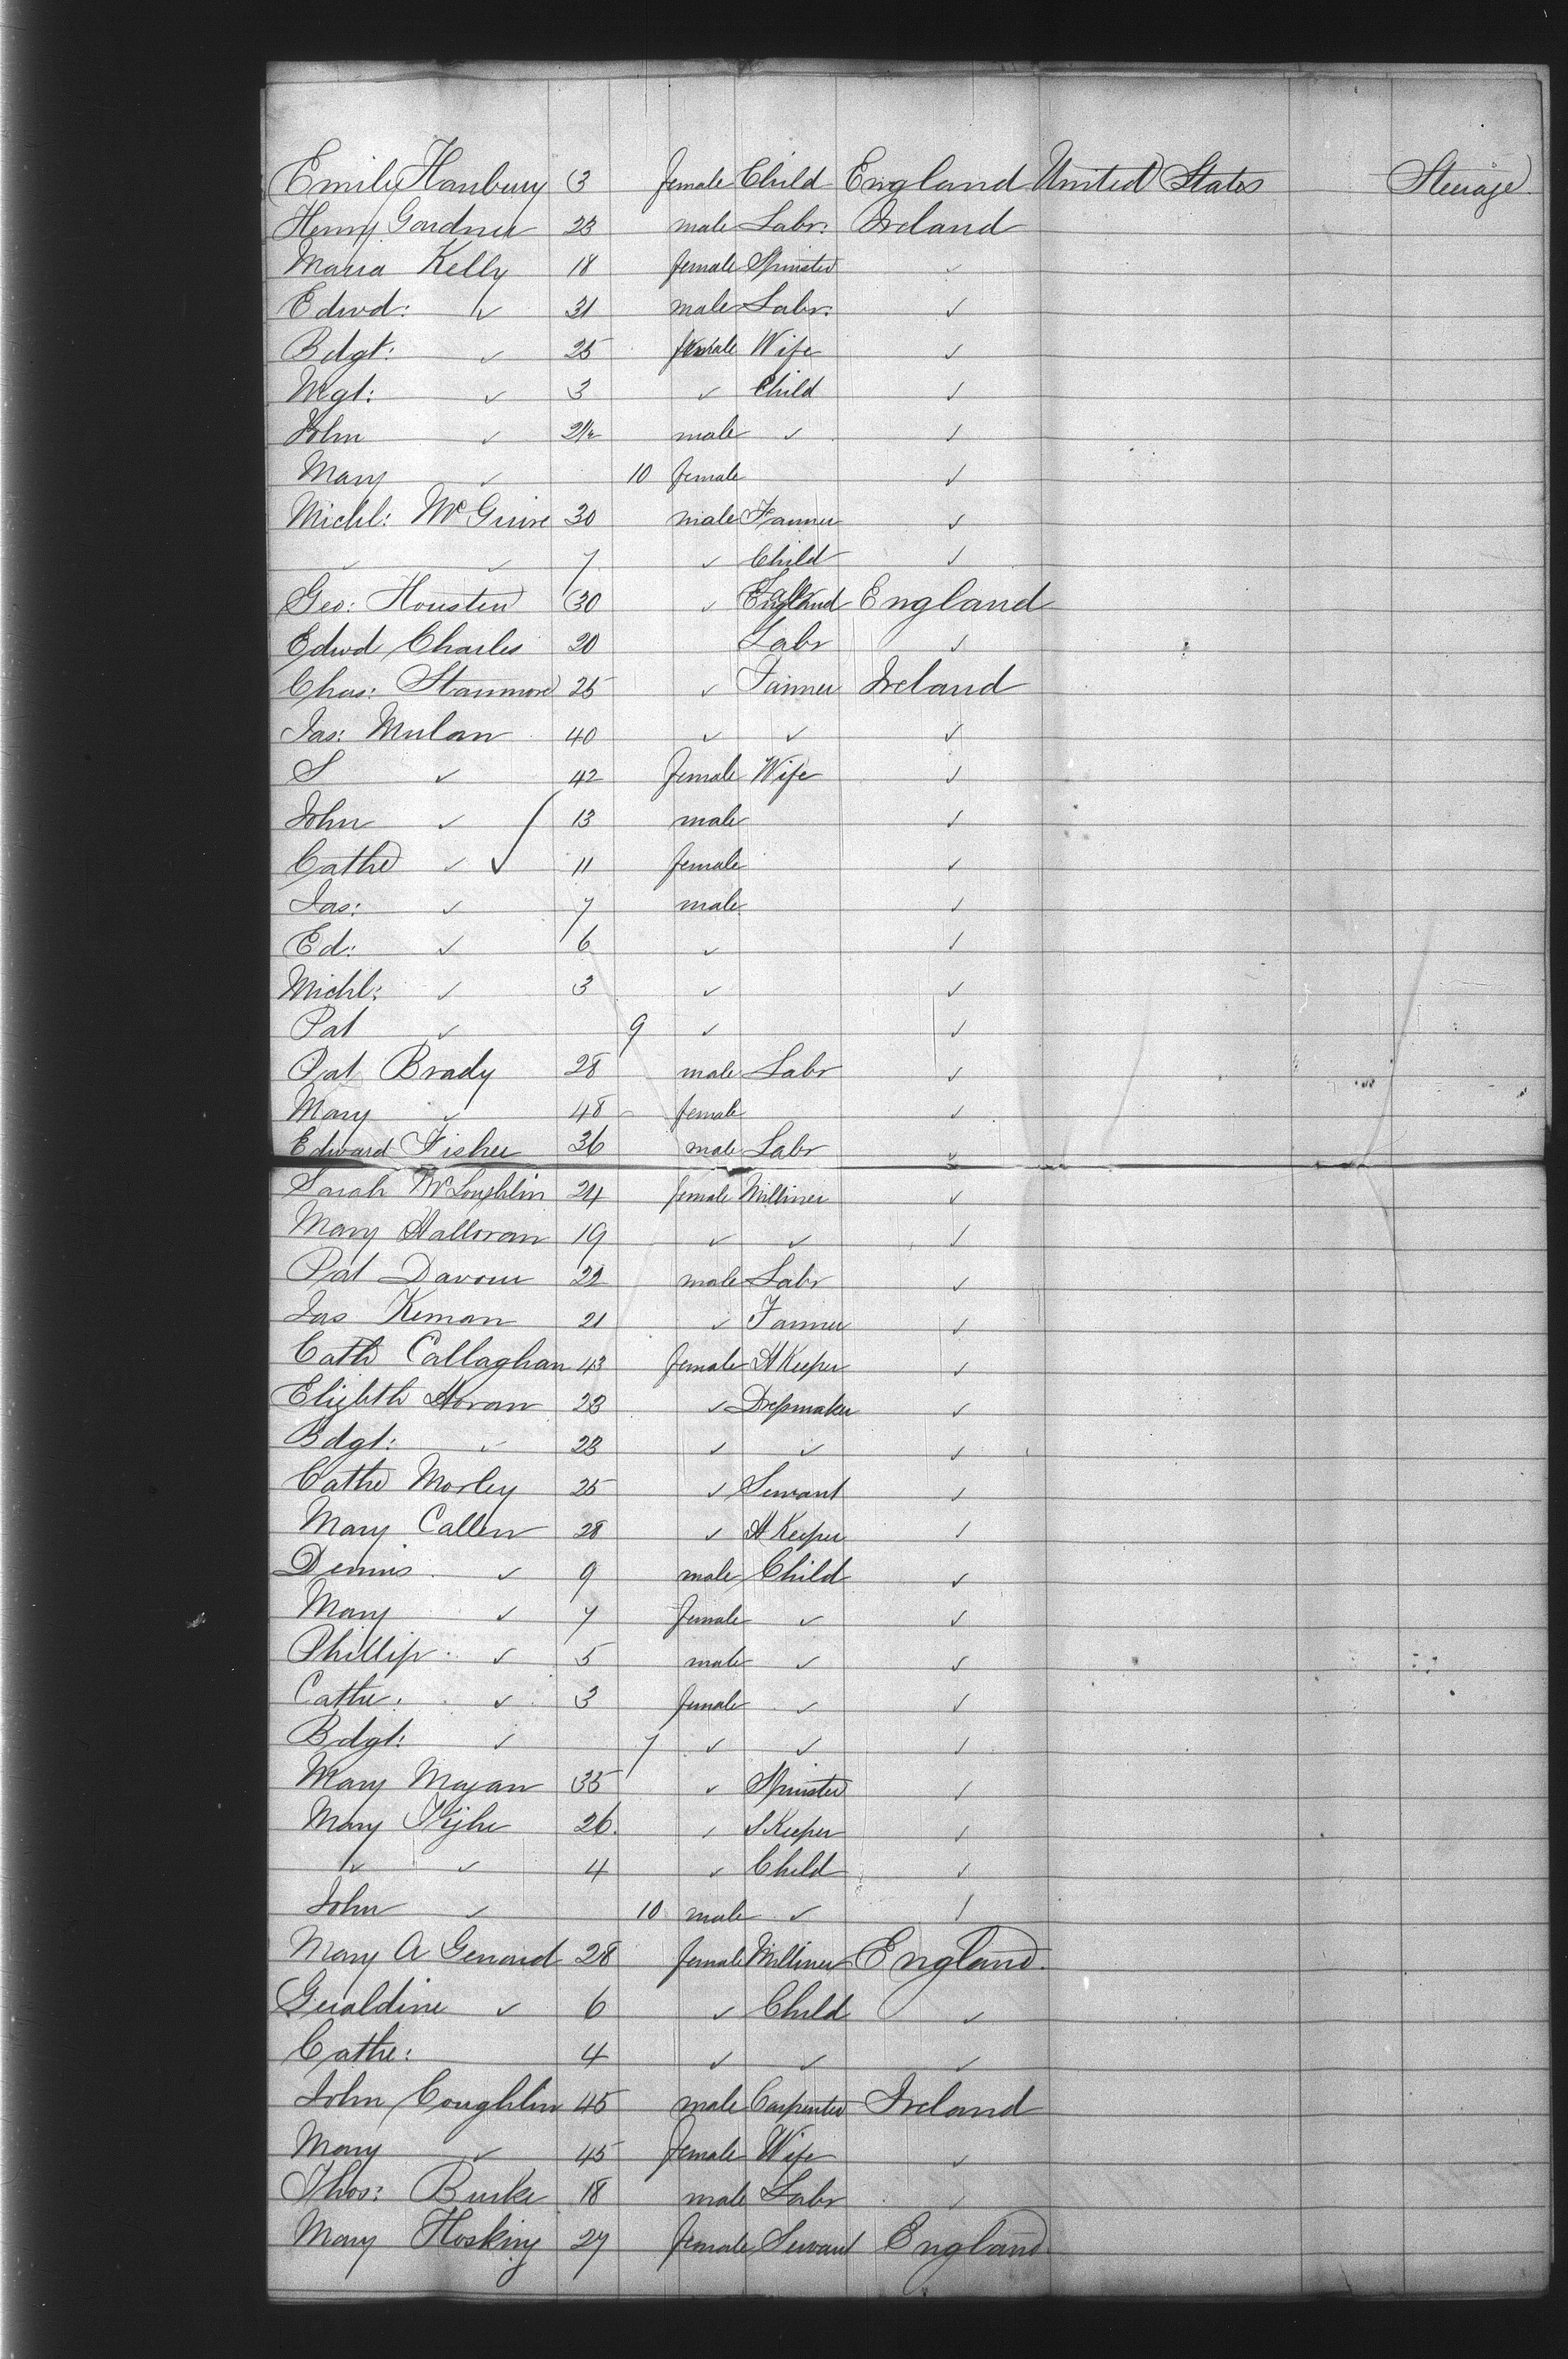 Emily Hanbury 3 female Child England United States Steerage
Henry Gardner 23 male Labr: Ireland
Maria Kelly 18 female Spinster ✓
Edwd: ✓ 31 male Labr: ✓
Bdgt: ✓ 25 female Wife ✓
Mgt: ✓ 3 ✓ Child ✓
John ✓ 2½ male ✓ ✓
Mary ✓ 10 female ✓
Michl: McGuire 30 male Farmer ✓
✓ ✓ 7 ✓ Child ✓
Geo: Housten 30 ✓ Labr England
Edwd Charles 20 Labr ✓
Chas: Stanmore 25 ✓ Farmer Ireland
Jas: Mulan 40 ✓ ✓ ✓
S ✓ 42 female Wife ✓
John ✓ 13 male ✓
Cathe ✓ 11 female ✓
Jas: ✓ 7 male ✓
Ed: ✓ 6 ✓ ✓
Michl: ✓ 3 ✓ ✓
Pat ✓ 9 ✓ ✓
Pat Brady 28 male Labr ✓
Mary ✓ 48 female ✓
Edward Fisher 36 male Labr ✓
Sarah McLoughlin 24 female Milliner ✓
Mary Halloran 19 ✓ ✓ ✓
Pat Davour 22 male Labr ✓
Jas Kernan 21 ✓ Farmer ✓
Cath Callaghan 43 female H Keeper ✓
Elizbth Horan 23 ✓ Dressmaker ✓
Bdgt: ✓ 23 ✓ ✓ ✓
Cathe Morley 25 ✓ Servant ✓
Mary Callen 28 ✓ H Keeper ✓
Dennis ✓ 9 male Child ✓
Mary ✓ 7 female ✓ ✓
Phillip ✓ 5 male ✓ ✓
Cathe: ✓ 3 female ✓ ✓
Bdgt: ✓ 7 ✓ ✓ ✓
Mary Mojan 35 ✓ Spinster ✓
Mary 26 ✓ S Keeper ✓
✓ ✓ 4 ✓ Child ✓
John ✓ 10 male ✓ ✓
Mary A Gerrard 28 female Milliner England
Geraldine ✓ 6 ✓ Child ✓
Cathe: 4 ✓ ✓ ✓
John Coughlin 45 male Carpenter Ireland
Mary ✓ 45 female Wife ✓
Thos: Burke 18 male Labr ✓
Mary Hosking 27 female Servant England